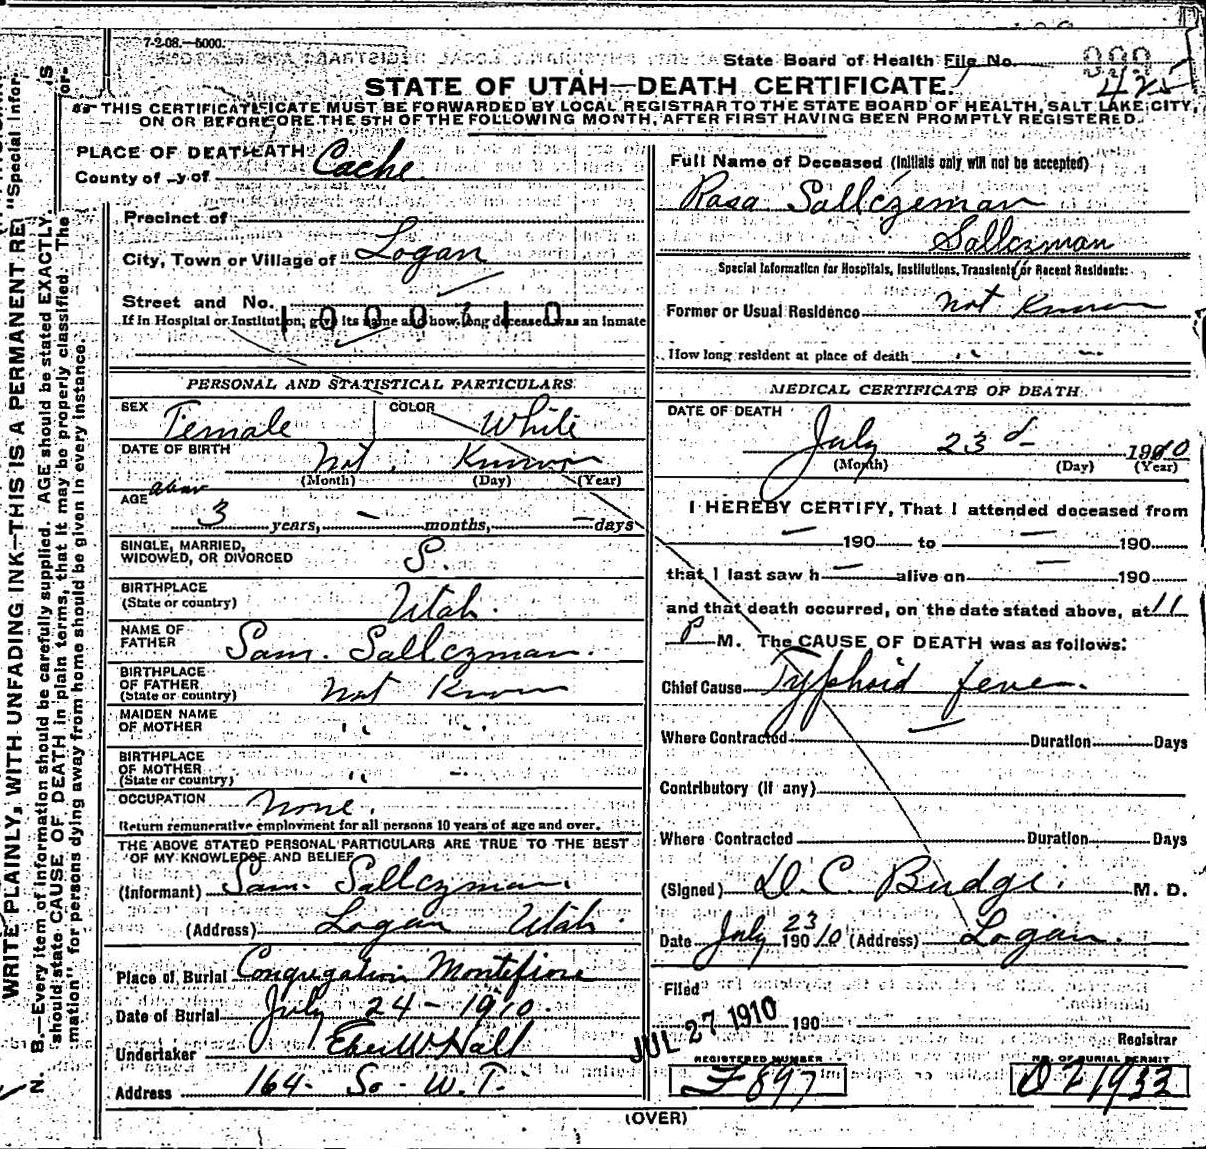 7-2-08.—5000.
State Board of Health File No.
425
STATE OF UTAH—DEATH CERTIFICATE.
THIS CERTIFICATE IFICATE MUST BE FORWARDED BY LOCAL REGISTRAR TO THE STATE BOARD OF HEALTH, SALT LAKE CITY,
ON OR BEFORE ORE THE 5TH OF THE FOLLOWING MONTH, AFTER FIRST HAVING BEEN PROMPTLY REGISTERED.
PLACE OF DEATH EATH
County of y of Cache
Precinct of
City, Town or Village of Logan
Street and No.
1000710
If in Hospital or Institution, give its name and how long deceased was an inmate
Full Name of Deceased (Initials only will not be accepted)
Rosa Sallczeman
Sallczman
Special Information for Hospitals, Institutions, Transients or Recent Residents:
Former or Usual Residence Not Known
How long resident at place of death " "
PERSONAL AND STATISTICAL PARTICULARS
SEX Female COLOR White
DATE OF BIRTH Not Known
(Month) (Day) (Year)
AGE about
3 years, – months, – days
SINGLE, MARRIED,
WIDOWED, OR DIVORCED S.
BIRTHPLACE
(State or country) Utah.
NAME OF
FATHER Sam. Sallczman.
BIRTHPLACE
OF FATHER
(State or country) Not Known
MAIDEN NAME
OF MOTHER " "
BIRTHPLACE
OF MOTHER
(State or country) " "
OCCUPATION None.
Return remunerative employment for all persons 10 years of age and over.
THE ABOVE STATED PERSONAL PARTICULARS ARE TRUE TO THE BEST
OF MY KNOWLEDGE AND BELIEF
(Informant) Sam. Sallczman.
(Address) Logan Utah.
Place of Burial Congregation Montefiore
Date of Burial July 24 - 1910.
Undertaker Eber W Hall
Address 164- So- W. T.
MEDICAL CERTIFICATE OF DEATH
DATE OF DEATH
July 23d 1910
(Month) (Day) (Year)
I HEREBY CERTIFY, That I attended deceased from
– 190 to – 190
that I last saw h – alive on – 190
and that death occurred, on the date stated above, at 11
P M. The CAUSE OF DEATH was as follows:
Chief Cause Typhoid fever.
Where Contracted – Duration Days
Contributory (if any)
Where Contracted Duration Days
(Signed) D. C. Budge. M. D.
Date July 23 1910 (Address) Logan.
Filed
JUL 27 1910 190
Registrar
REGISTERED NUMBER
F 897
NO. OF BURIAL PERMIT
(OVER)
WRITE PLAINLY, WITH UNFADING INK—THIS IS A PERMANENT RE
N. B.—Every item of information should be carefully supplied. AGE should be stated EXACTLY.
should state CAUSE OF DEATH in plain terms, that it may be properly classified. The "Special Infor-
mation" for persons dying away from home should be given in every instance.